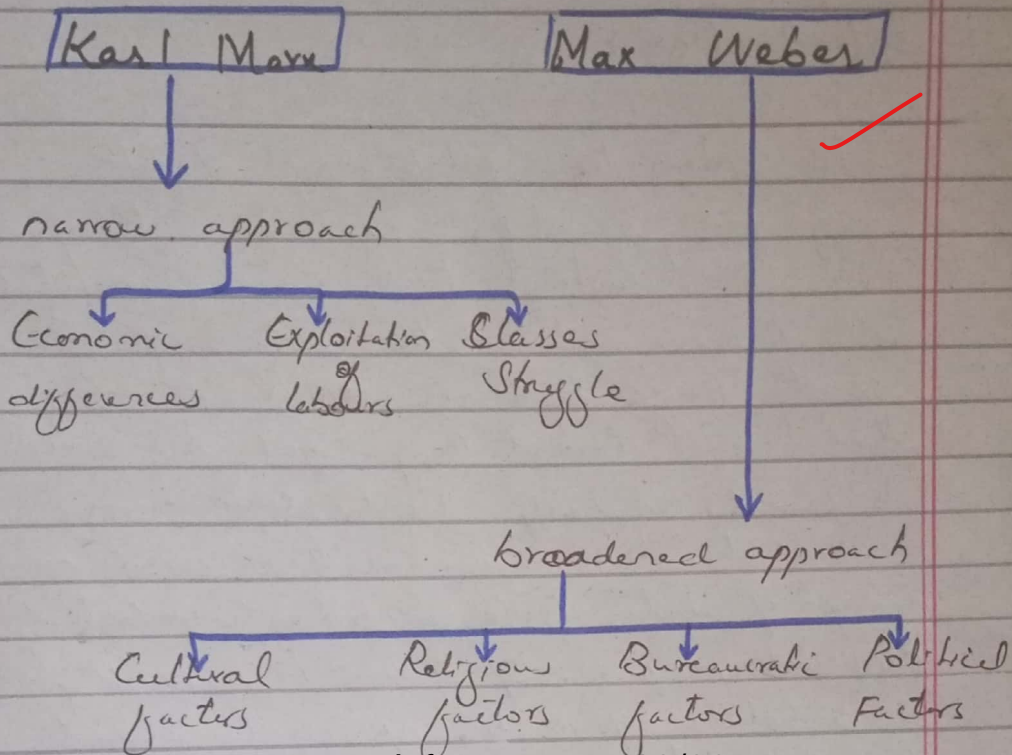 Karl Marx
Max Weber
narrow approach
Economic differences
Exploitation of labours
Classes Struggle
broadened approach
Cultural factors
Religious factors
Bureaucratic factors
Political Factors